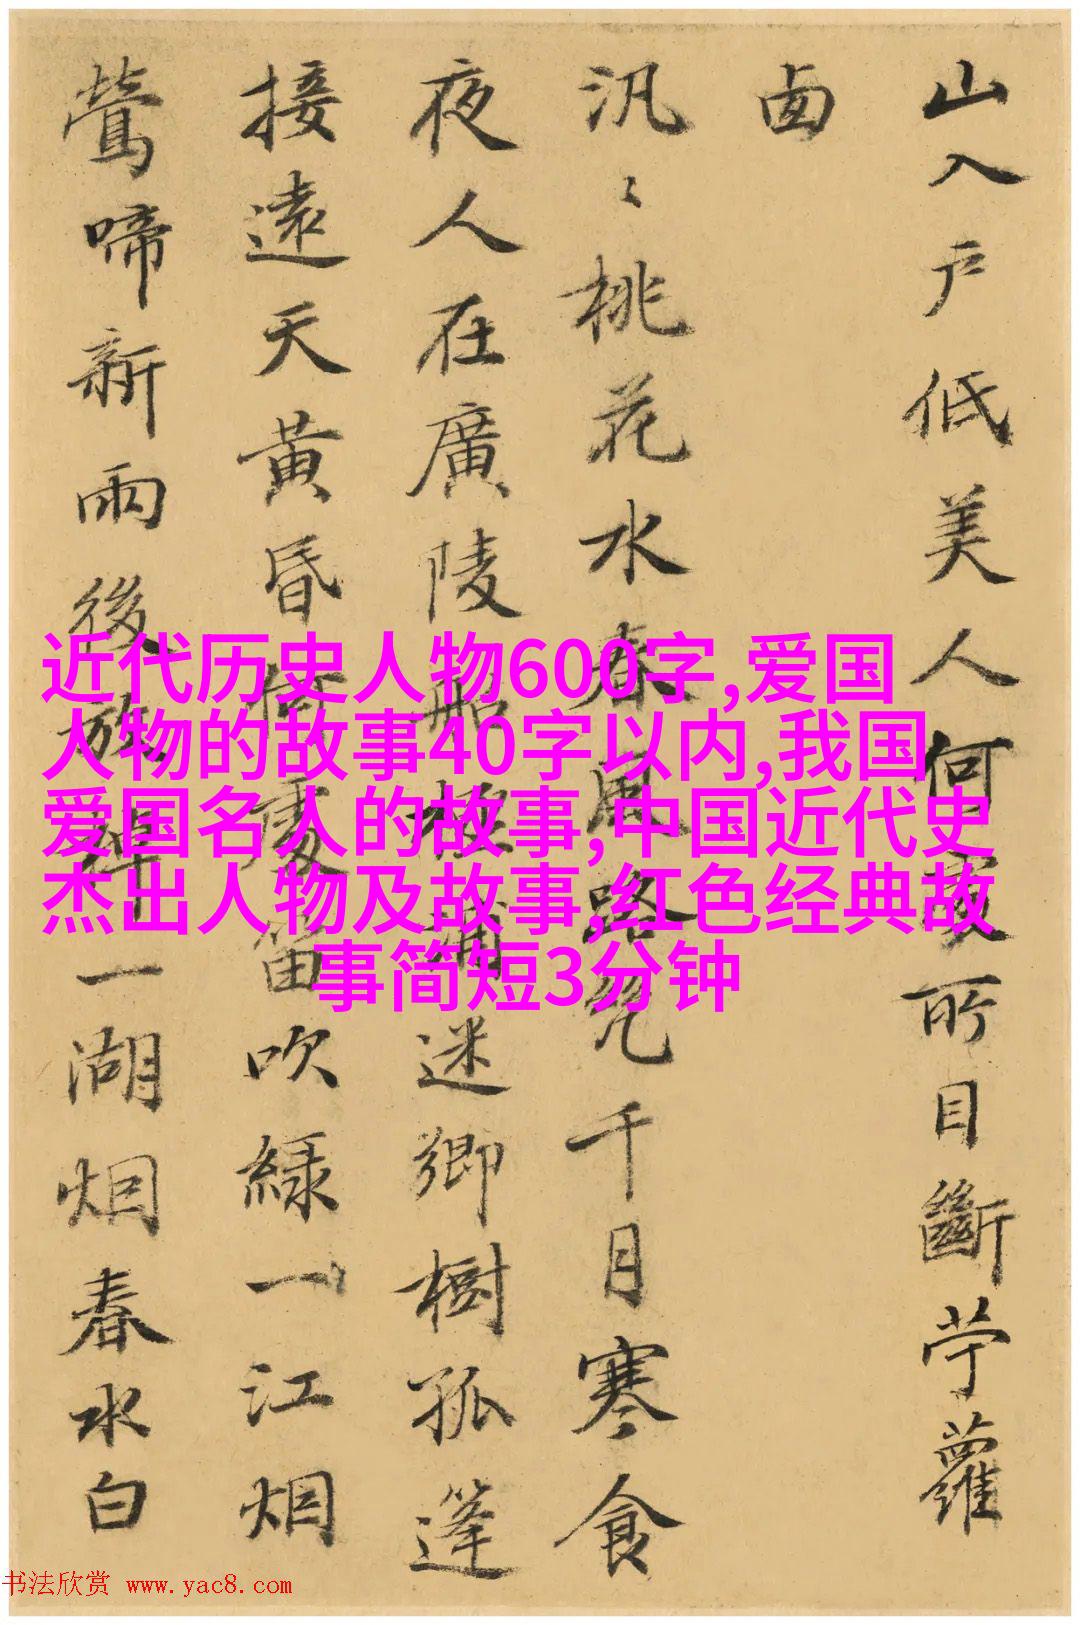 山入戶低美人何處所目斷苧蘿
卤
汎〻桃花水春風路幾千月寒食
夜人在廣陵船極浦迷鄉樹孤篷
接遠天黃昏何處笛吹綠一江烟
鶯啼新雨後放棹一湖烟春水白
近代历史人物600字,爱国
人物的故事40字以内,我国
爱国名人的故事,中国近代史
杰出人物及故事,红色经典故
事简短3分钟
书法欣赏 www.yac8.com